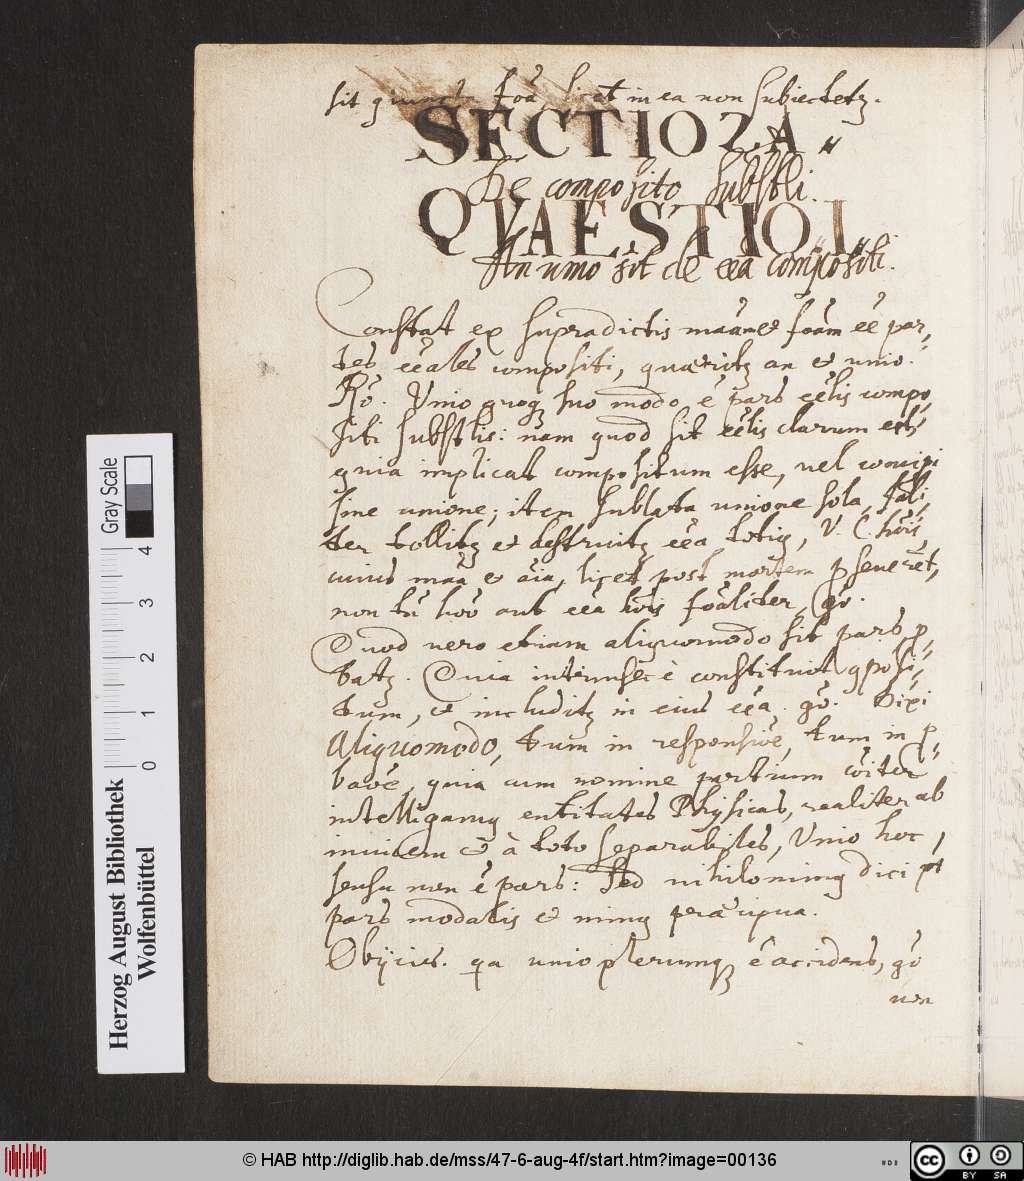 sit in ea non subiectetr.
SECTIO 2.A
De composito substli.
QVAESTIO I
An unio sit de eēa compositi.
Constat ex supradictis maām et foām eē par-
tes eēales compositi, quaeritr an et unio.
Rō. Unio quoq suo modo ē pars eēlis compo
siti substlis: nam quod sit eēlis clarum est,
quia implicat compositum esse, vel concipi
sine unione; item sublata unione sola, fāli
ter tollitr et destruitr eēa totig, V. C. hōis,
cuius maā et aīa, licet post mortem pseverēt,
non tn̄ hōō aut eēa hōis foāliter, gō.
Quod vero etiam aliquomodo sit pars, p-
batr. Quia intrinsecè constituit gposi-
tum, et includitr in eius eēa. gō. Dixi
Aliquomodo, tum in responsiōe, tum in p-
baōe, quia cum nomine partium cōiter
intelligamg entitates Physicas, realiter ab
invicem et à toto separabiles, Unio hoc
sensu non ē pars: Sed nihiloming dici pt
pars modalis et ming praecipua.
Obijcies. qa unio plerumq ē accidens, gō
non
Herzog August Bibliothek
Wolfenbüttel
Gray Scale
0 1 2 3 4
© HAB http://diglib.hab.de/mss/47-6-aug-4f/start.htm?image=00136
cc BY SA